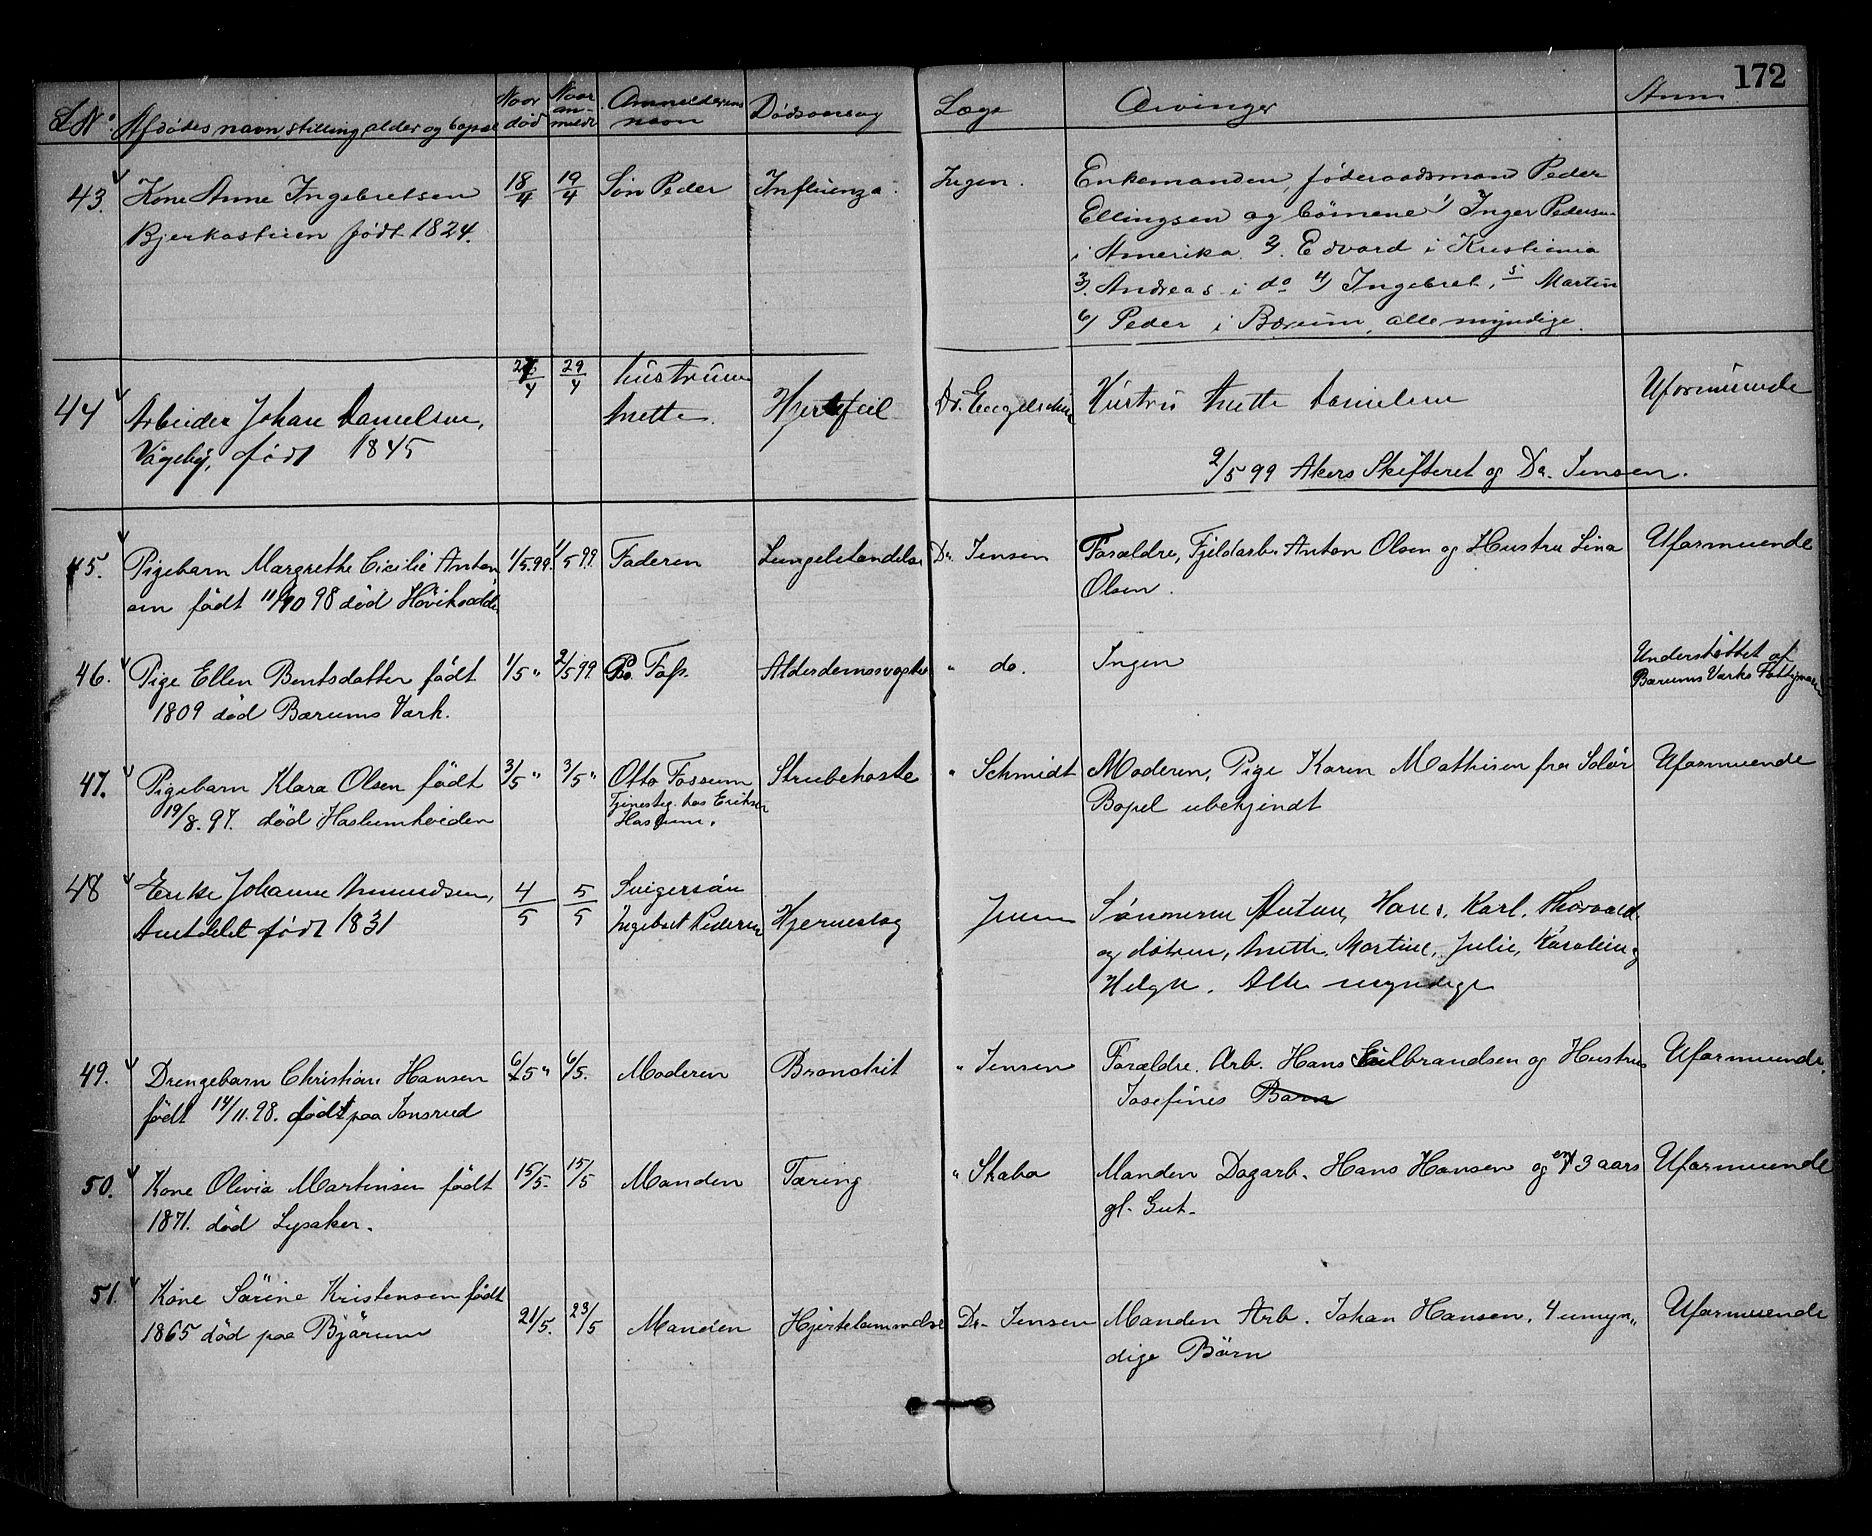 172
L№. Afdødes navn, stilling, alder og bopæl Naar død Naar anmeldt Anmelderens navn Dødsaarsag Læge Arvinger Anm
43. Kone Anne Ingebretsen 18/4 19/4 Søn Peder Influenza. Ingen. Enkemanden, føderaadsmand Peder
Bjerkastuen født 1824. Ellingsen og börnene 1/ Inger Pedersen
i Amerika. 2/. Edvard i Kristiania
3/. Andreas i do 4/ Ingebret, 5 Martin
6/ Peder i Bærum, alle myndige.
44 Arbeider Johan Danielsen, 29/4 hustruen Anette. Hjertefeil Dr. Engelschøn Hustru Anette Danielsen Uformuende
Vågeby, født 1845
2/5 99 Akers Skifteret og Dr. Jensen.
45. Pigebarn Margrethe Cicilie Anton 1/5.99. 1/5 99. Faderen Lungebetændelse Dr. Jensen Forældre, Fjeldarb. Anton Olsen og Hustru Lina Uformuende
sen født 11/10 98 død Hövikodde Olsen.
46. Pige Ellen Bentsdatter födt 1/5 " 2/5 99 Alderdomssvaghed " do. Ingen Understøttet af
1809 død Bærums Værk. Bærums Værks Fattigvæsen
47. Pigebarn Klara Olsen födt 3/5 " 3/5 " Otto Fossum Strubehoste " Schmidt Moderen, Pige Karen Mathisen fra Solör Uformuende
19/8.97. död Haslumheiden Tjenesteg. hos Eriksen Haslum. Bopel ubekjendt
48 Enke Johanne Amundsen, 4/5 5/5 Svigersön Hjerneslag Jensen Sönnerne Anton, Hans, Karl, Thorvald
født 1831 Ingebret Pedersen og døtrene, Anette, Martine, Julie, Karoline og
Helga. Alle myndige
49. Drengebarn Christian Hansen 6/5 " 6/5. Moderen Brandsit " Jensen Forældre. Arb. Hans Gulbrandsen og Hustru Uformuende.
födt 14/11.98. født paa Jonsrud Josefines Barn
50. Kone Olivia Martinsen födt 15/5. 15/5 Manden Tæring " Skabo Manden Dagarb. Hans Hansen og en 3 aars Uformuende
1871. död Lysaker. gl. Gut.
51. Kone Sörine Kristensen födt 21/5. 23/5 Manden Hjertelammelse Dr. Jensen Manden Arb. Johan Hansen, 4 umyn„ Uformuende
1865 död paa Bjärum dige Börn